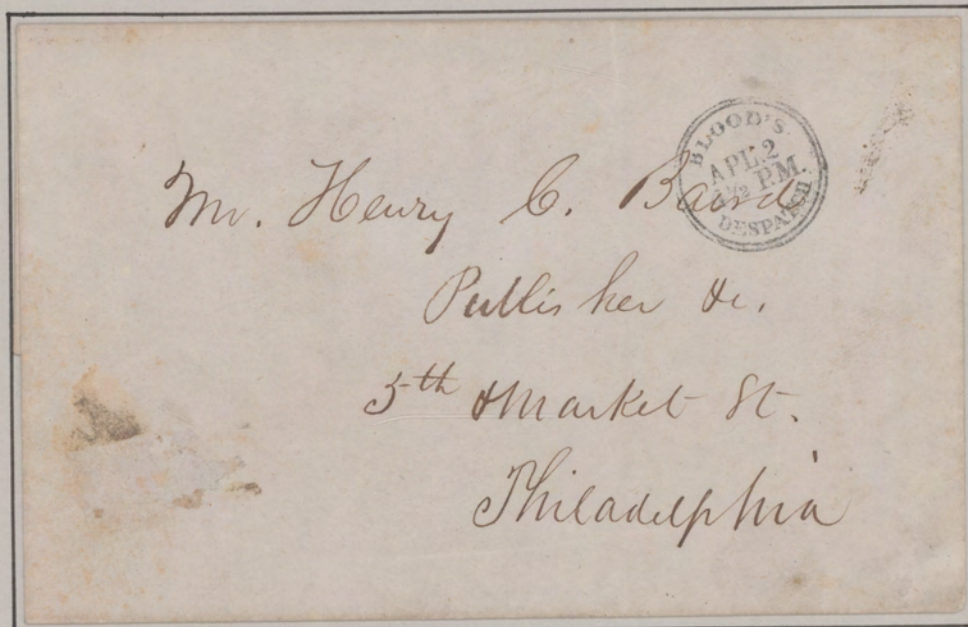 BLOOD'S.
APL.2
½ P.M.
DESPATCH
Mr. Henry C. Baird
Publisher &c.
5th & Market St.
Philadelphia